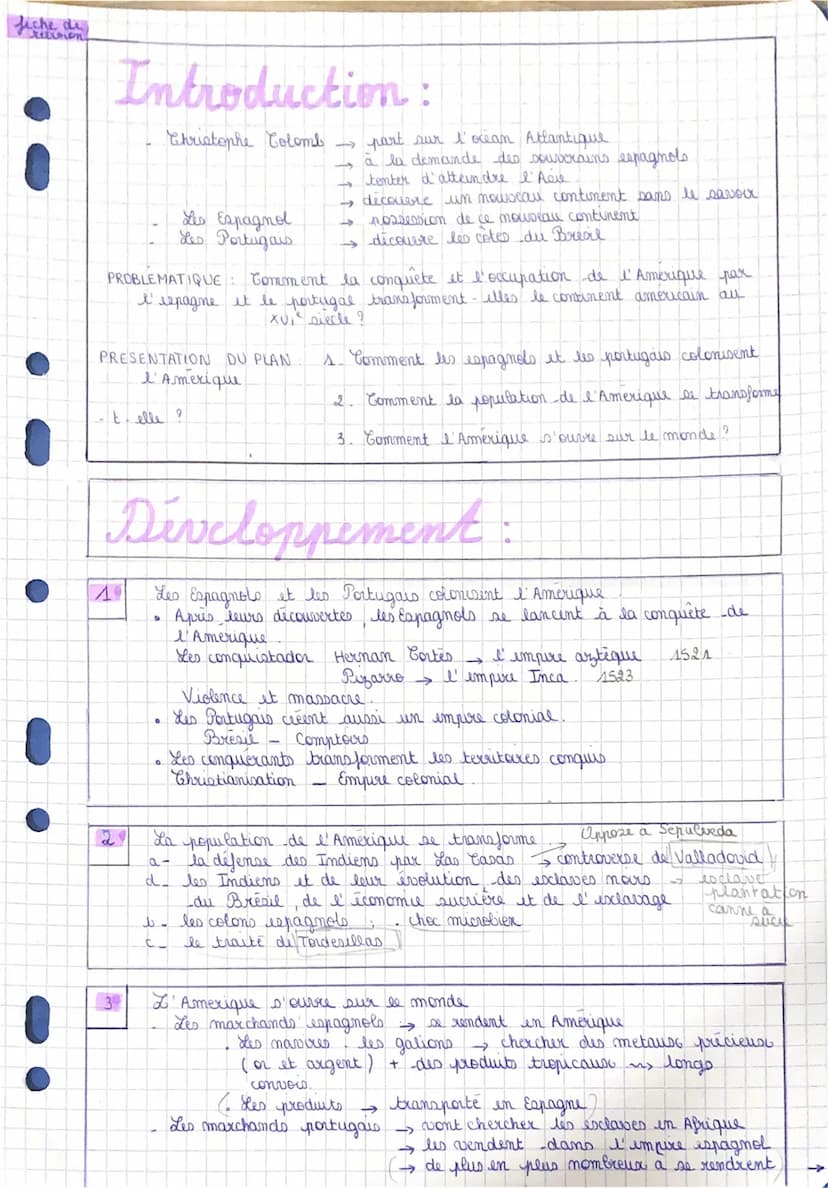 fiche de
révision
Introduction :
- Christophe Colomb → part sur l'océan Atlantique
→ à la demande des souverains espagnols
→ tenter d'atteindre l'Asie
→ découvre un nouveau continent sans le savoir
- Les Espagnol → possession de ce nouveau continent
- Les Portugais → découvre les côtes du Brésil
PROBLÉMATIQUE : Comment la conquête et l'occupation de l'Amérique par
l'espagne et le portugal transforment-elles le continent américain au
XVIe siècle ?
PRESENTATION DU PLAN 1. Comment les espagnols et les portugais colonisent
l'Amérique
2. Comment la population de l'Amérique se transforme
- t - elle ?
3. Comment l'Amérique s'ouvre sur le monde ?
Développement :
1 Les Espagnols et les Portugais colonisent l'Amérique
• Après leurs découvertes, les Espagnols se lancent à la conquête de
l'Amérique.
Les conquistador Hernan Cortés → l'empire aztèque 1521
Pizarro → l'empire Inca. 1523
Violence et massacre.
• Les Portugais créent aussi un empire colonial.
Brésil - Comptoirs
• Les conquérants transforment les territoires conquis
Christianisation - Empire colonial.
2 La population de l'Amérique se transforme Oppose à Sepulveda
a- la défense des Indiens par Las Casas → controverse de Valladovid
d- les Indiens et de leur évolution des esclaves noirs → esclave
du Brésil, de l'économie sucrière et de l'esclavage plantation
canne à
sucre
b- les colons espagnols ; . choc microbien
c- le traité de Tordesillas
3 L'Amerique s'ouvre sur le monde
- Les marchands espagnols → se rendent en Amérique
. Les navires : les galions → chercher des metaux précieux
(or et argent) + des produits tropicaux ~> longs
convois.
(. Les produits → transporté en Espagne)
- Les marchands portugais → vont chercher les esclaves en Afrique
→ les vendent dans l'empire espagnol
(→ de plus en plus nombreux a se rendrent →